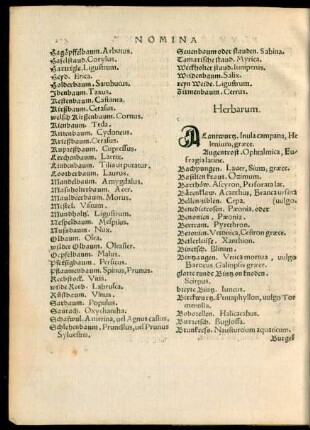 NOMINA
Hagöpffelbaum. Arbutus.
Haselstaud. Corylus.
Hartrigle. Ligustrum.
Heyd. Erica.
Holderbaum. Sambucus.
Ibenbaum. Taxus.
Kestenbaum. Castanea.
Kerßbaum. Cerasus.
welsch Kirssenbaum. Cornus.
Kienbaum. Teda.
Kuttenbaum. Cydoneus.
Kriesßbaum. Cerasus.
Kupressßbaum. Cupressus.
Lerchenbaum. Larix.
Lindenbaum. Tilia
Lorberbaum. Laurus.
Mandelbaum. Amygdalus.
Masholterbaum. Acer.
Maulbeerbaum. Morus.
Mistel. Visum.
Mundholtz. Ligustrum.
Nespelbaum. Mespilus.
Nußbaum. Nux.
Olbaum. Olea.
wilder Olbaum. Oleaster.
Opffelbaum. Malus.
Pfersichbaum. Persicus.
Pflaumenbaum. Spinus, Prunus.
Rebstock. Vitis.
wilde Reeb. Labrusca.
Rüstbaum. Vlmus.
Sarbaum. Populus.
Saurach. Oxyacantha.
Schafmül. Amerina, uel Agnus castus.
Schlehenbaum. Prunellus, uel Prunus
Syluestris.
Seuenbaum oder stauden. Sabina.
Tamariscstaud. Myrica.
Weckholterstaud. Iuniperus.
Weidenbaum. Salix.
reyn Weide. Ligustrum.
Zirnenbaum. Cerrus.
Herbarum.
Alantwurtz. Inula campana, He
lenium, græce.
Augentrost. Ophtalmica, Eu
fragia latine.
Bachpungen. Lauer, Sium, græce.
Basilien kraut. Ozimum.
Barthaw. Ascyron, Perforata
Bäretlaw. Acanthus, Branca ursi
Benedictrosen. Pæonia. oder
Benonien. Pæonia.
Bertram. Pyrethron.
Betonien. Vetonica, Cestron græce.
Betlerleüse. Xanthion.
Binetsch. Blitum.
Scirpus.
breyte Bintz. Iuncus.
Birckwurtz. Pentaphyllon, uulgo Tor
mentilla.
Boborellen. Halicacabus.
Buretsch. Buglossa.
Brunkreß. Nasturcium aquaticum.
Burgel